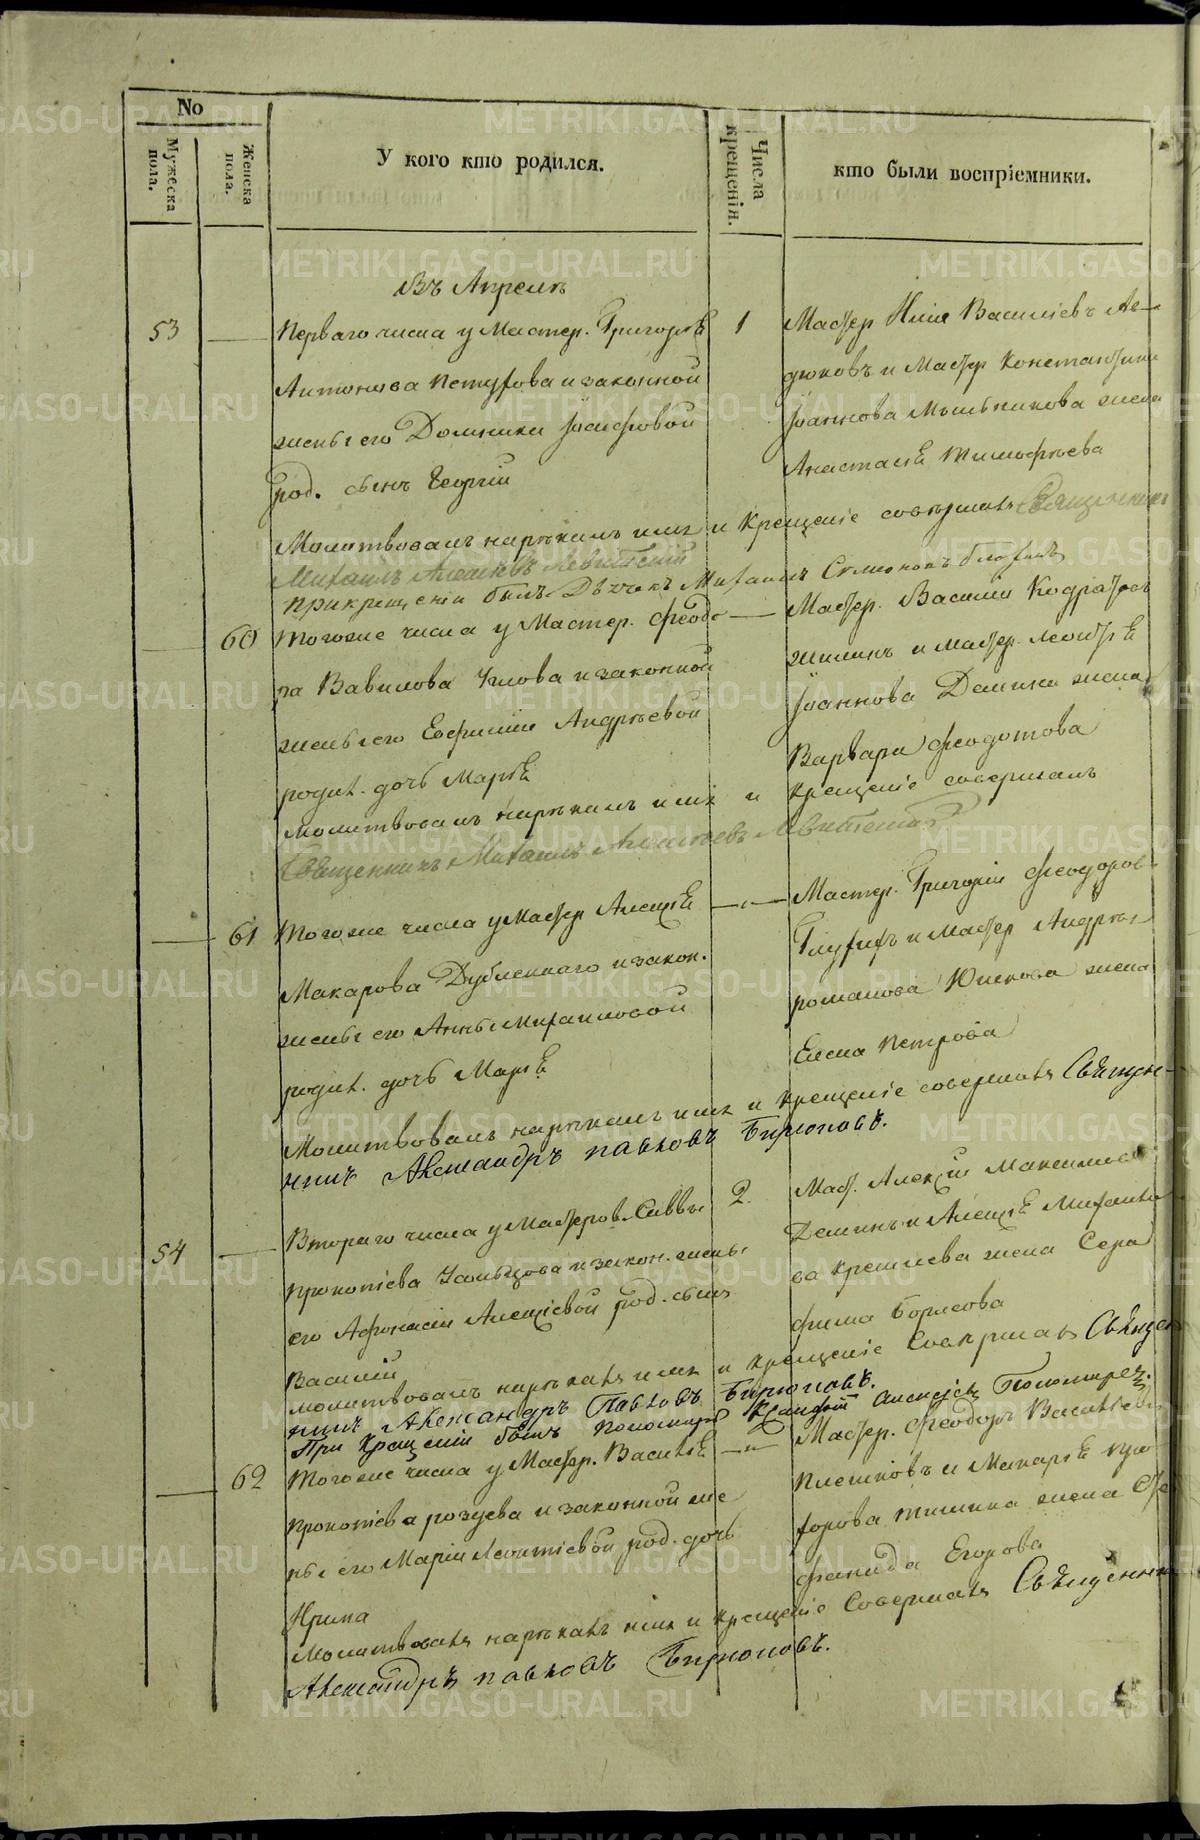 No
Мужеска пола.
Женска пола.
У кого кто родился.
Числа крещенія.
кто были воспріемники.
Въ Апреле
53
Перваго числа у Мастер. Григорья
Антонова Петухова и законной
жены его Домники Іосифовой
род. сынъ Георгій
1
Мастер Илія Василіевъ
и Мастер Константина
Іоаннова Мыльникова жена
Анастасія Тимофеева
Молитвовалъ нарекалъ имя и Крещеніе совершалъ Священникъ
Михаилъ Алексеевъ Левитскій
При крещеніи былъ Дьячекъ Михаилъ Симеоновъ
60
Тогоже числа у Мастер. Феодо
ра Вавилова и законной
жены его Евфиміи Андреевой
родил. дочь Марія
Мастер. Василій
и мастер. Леонтья
Іоаннова Демина жена
Варвара Феодотова
Молитвовалъ нарекалъ имя и крещеніе совершалъ
Священникъ Михаилъ Алексеевъ Левитскій
61
Тогоже числа у Мастер Алексея
Макарова Дубленнаго и закон.
жены его Анны Михаиловой
родил. дочь Марія
Мастер. Григорій Феодоров
и Мастер Андрея
романова Юшкова жена
Елена Петрова
Молитвовалъ нарекалъ имя и крещеніе совершалъ Священ-
никъ Александръ павловъ Бирюковъ.
54
Втораго числа у Мастеров. Саввы
прокопіева и закон. жены
его Афонасіи Алексіевой род. сынъ
Василій
2.
Маст. Алексій Максимов
Деминъ и Алексея Михаило
ва жена Сера
фима Борисова
Молитвовалъ нарекалъ имя и крещеніе Совершалъ Священ
никъ Александръ Павловъ Бирюковъ.
При Крещеніи былъ пономарь Алексеевъ Пономарев.
62
Тогоже числа у Мастер. Василья
прокопіева и законной же
ны его Маріи Леонтіевой род. дочь
Ирина
Мастер. Феодоръ Васильев
Плешковъ и Макарья
жена Сте
фанида Егорова
Молитвовалъ нарекалъ имя и крещеніе Совершалъ Священник
Александръ павловъ Бирюковъ.